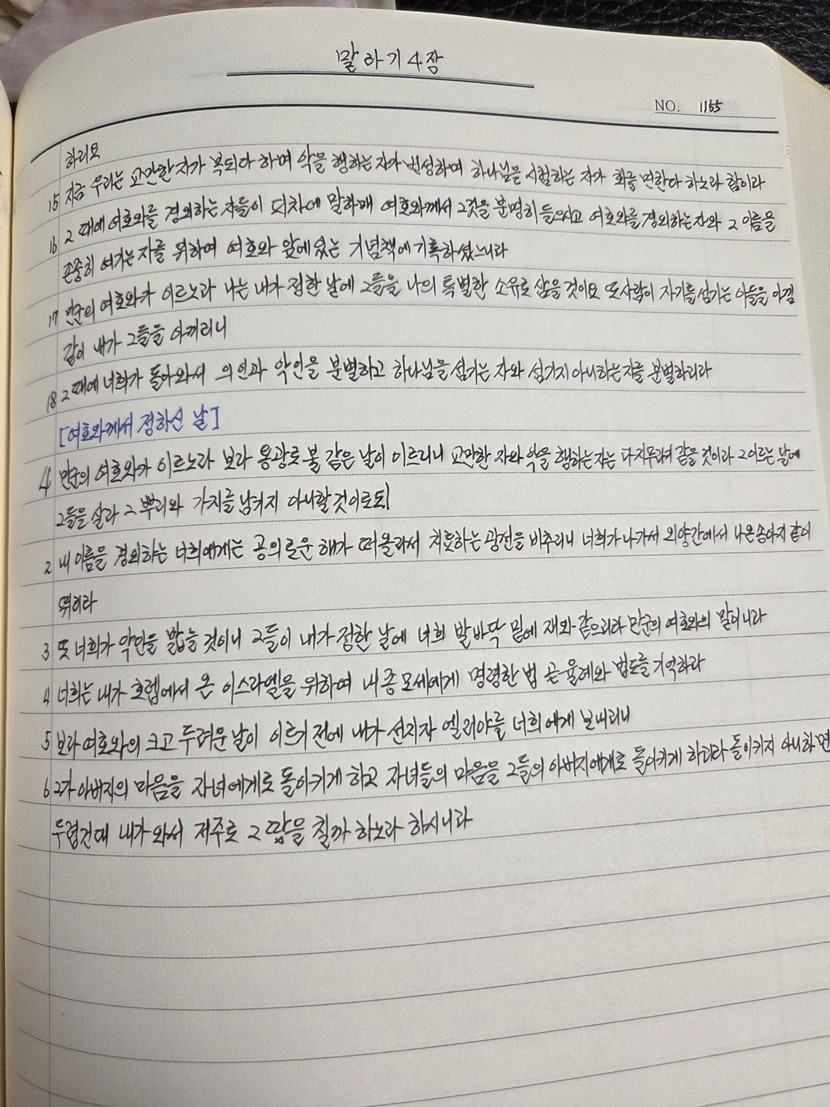 말라기 4장
NO. 1165
하리요
15 지금 우리는 교만한 자가 복되다 하며 악을 행하는 자가 번성하며 하나님을 시험하는 자가 화를 면한다 하노라 함이라
16 그 때에 여호와를 경외하는 자들이 피차에 말하매 여호와께서 그것을 분명히 들으시고 여호와를 경외하는 자와 그 이름을
존중히 여기는 자를 위하여 여호와 앞에 있는 기념책에 기록하셨느니라
17 만군의 여호와가 이르노라 나는 내가 정한 날에 그들을 나의 특별한 소유로 삼을 것이요 또 사람이 자기를 섬기는 아들을 아낌
같이 내가 그들을 아끼리니
18 그 때에 너희가 돌아와서 의인과 악인을 분별하고 하나님을 섬기는 자와 섬기지 아니하는 자를 분별하리라
[여호와께서 정하신 날]
4 만군의 여호와가 이르노라 보라 용광로 불 같은 날이 이르리니 교만한 자와 악을 행하는 자는 다 지푸라기 같을 것이라 그 이르는 날에
그들을 살라 그 뿌리와 가지를 남기지 아니할 것이로되
2 내 이름을 경외하는 너희에게는 공의로운 해가 떠올라서 치료하는 광선을 비추리니 너희가 나가서 외양간에서 나온 송아지 같이
뛰리라
3 또 너희가 악인을 밟을 것이니 그들이 내가 정한 날에 너희 발바닥 밑에 재와 같으리라 만군의 여호와의 말이니라
4 너희는 내가 호렙에서 온 이스라엘을 위하여 내 종 모세에게 명령한 법 곧 율례와 법도를 기억하라
5 보라 여호와의 크고 두려운 날이 이르기 전에 내가 선지자 엘리야를 너희에게 보내리니
6 그가 아버지의 마음을 자녀에게로 돌이키게 하고 자녀들의 마음을 그들의 아버지에게로 돌이키게 하리라 돌이키지 아니하면
두렵건대 내가 와서 저주로 그 땅을 칠까 하노라 하시니라